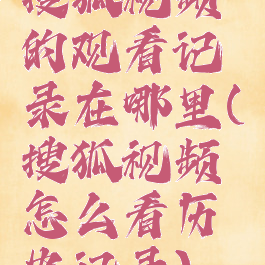 搜狐视频
的观看记
录在哪里(
搜狐视频
怎么看历
史记录)